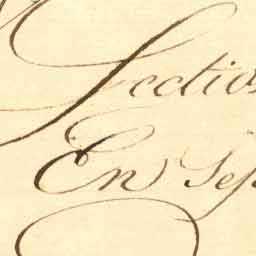 Lectio
En Sep